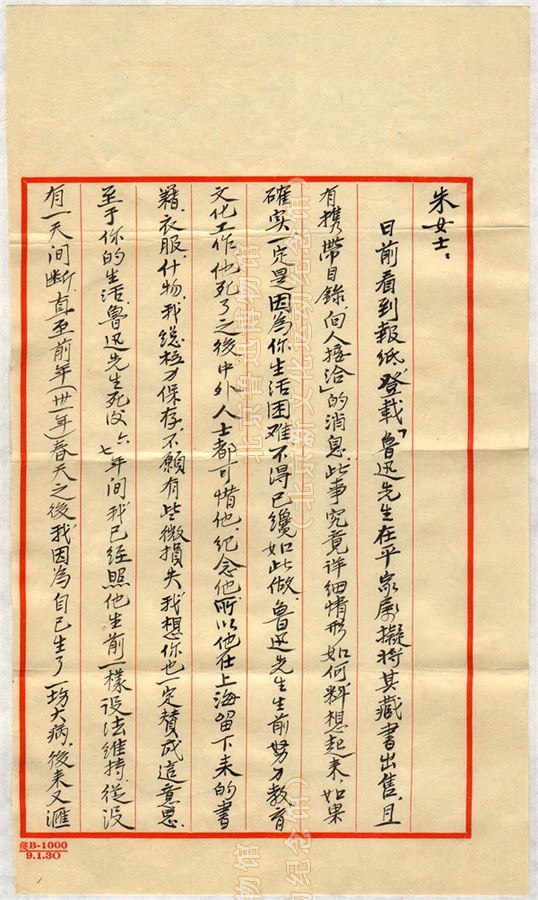 朱女士：
日前看到報紙，登載「魯迅先生在平家屬擬將其藏書出售，且
有携帶目錄向人接洽」的消息，此事究竟詳細情形如何料想起來，如果
確实，一定是因為你生活困难不得已纔如此做。魯迅先生生前努力教育
文化工作，他死了之後，中外人士都可惜他，紀念他，所以他在上海留下来的書
籍、衣服、什物，我總極力保存，不願有些微損失，我想你也一定賛成這意思。
至于你的生活，魯迅先生死後六七年间我已经照他生前一樣设法維持，從没
有一天间断。直至前年（卅一年）春天之後，我因為自己生了一場大病，後来又滙
B-1000
9.1.30
北京鲁迅博物馆
（北京新文化运动纪念馆）
物馆
纪念馆）